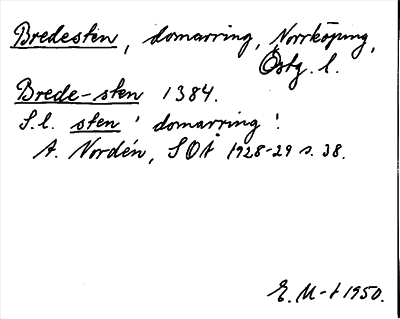 Bredesten, domarring, Norrköping,
Östg. l.
Brede-sten 1384.
S.l. sten 'domarring'.
A. Nordén, SOÅ 1928-29 s. 38.
E. M-t 1950.